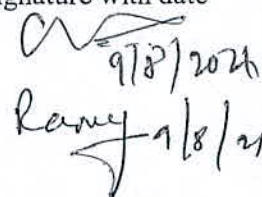 gnature with date
9/8/2021
Ramy 9/8/21